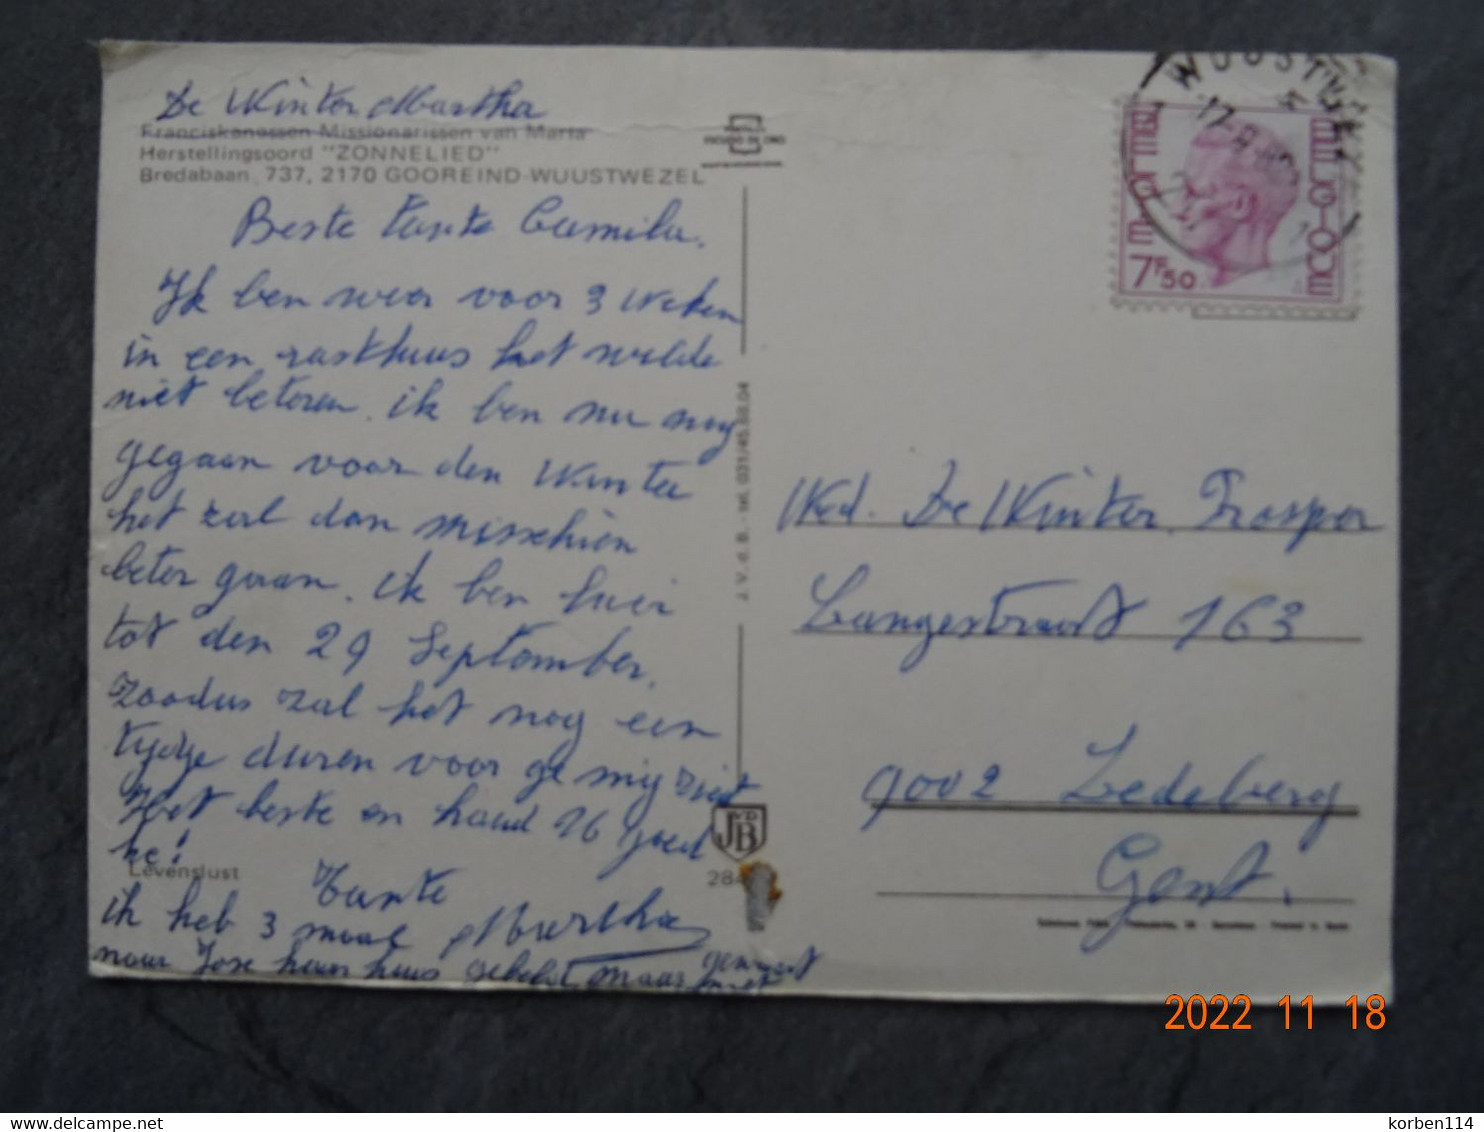 De Winter Martha
Franciskanessen Missionarissen van Maria
Herstellingsoord "ZONNELIED"
Bredabaan, 737, 2170 GOOREIND-WUUSTWEZEL
Beste tante Camila.
Ik ben weer voor 3 weken
in een rusthuus het wilde
niet beteren. ik ben nu nog
gegaan voor den Winter
het zal dan misschien
beter gaan. ik ben hier
tot den 29 September.
zoodus zal het nog een
tijdje duren voor ge mij ziet
Het beste en houd U goed
he!
Levenslust
Tante
Martha
ik heb 3 maal
naar Jose haar huus gebeld maar
niet
J.V.d.B. - tel. 031/45.98.04
JVDB
284
WUUSTWEZEL
17-9
BELGIE
BELGIQUE
7F50
Wed. De Winter. Prosper
Langestraat 163
9002 Ledeberg
Gent.
2022 11 18
korben114